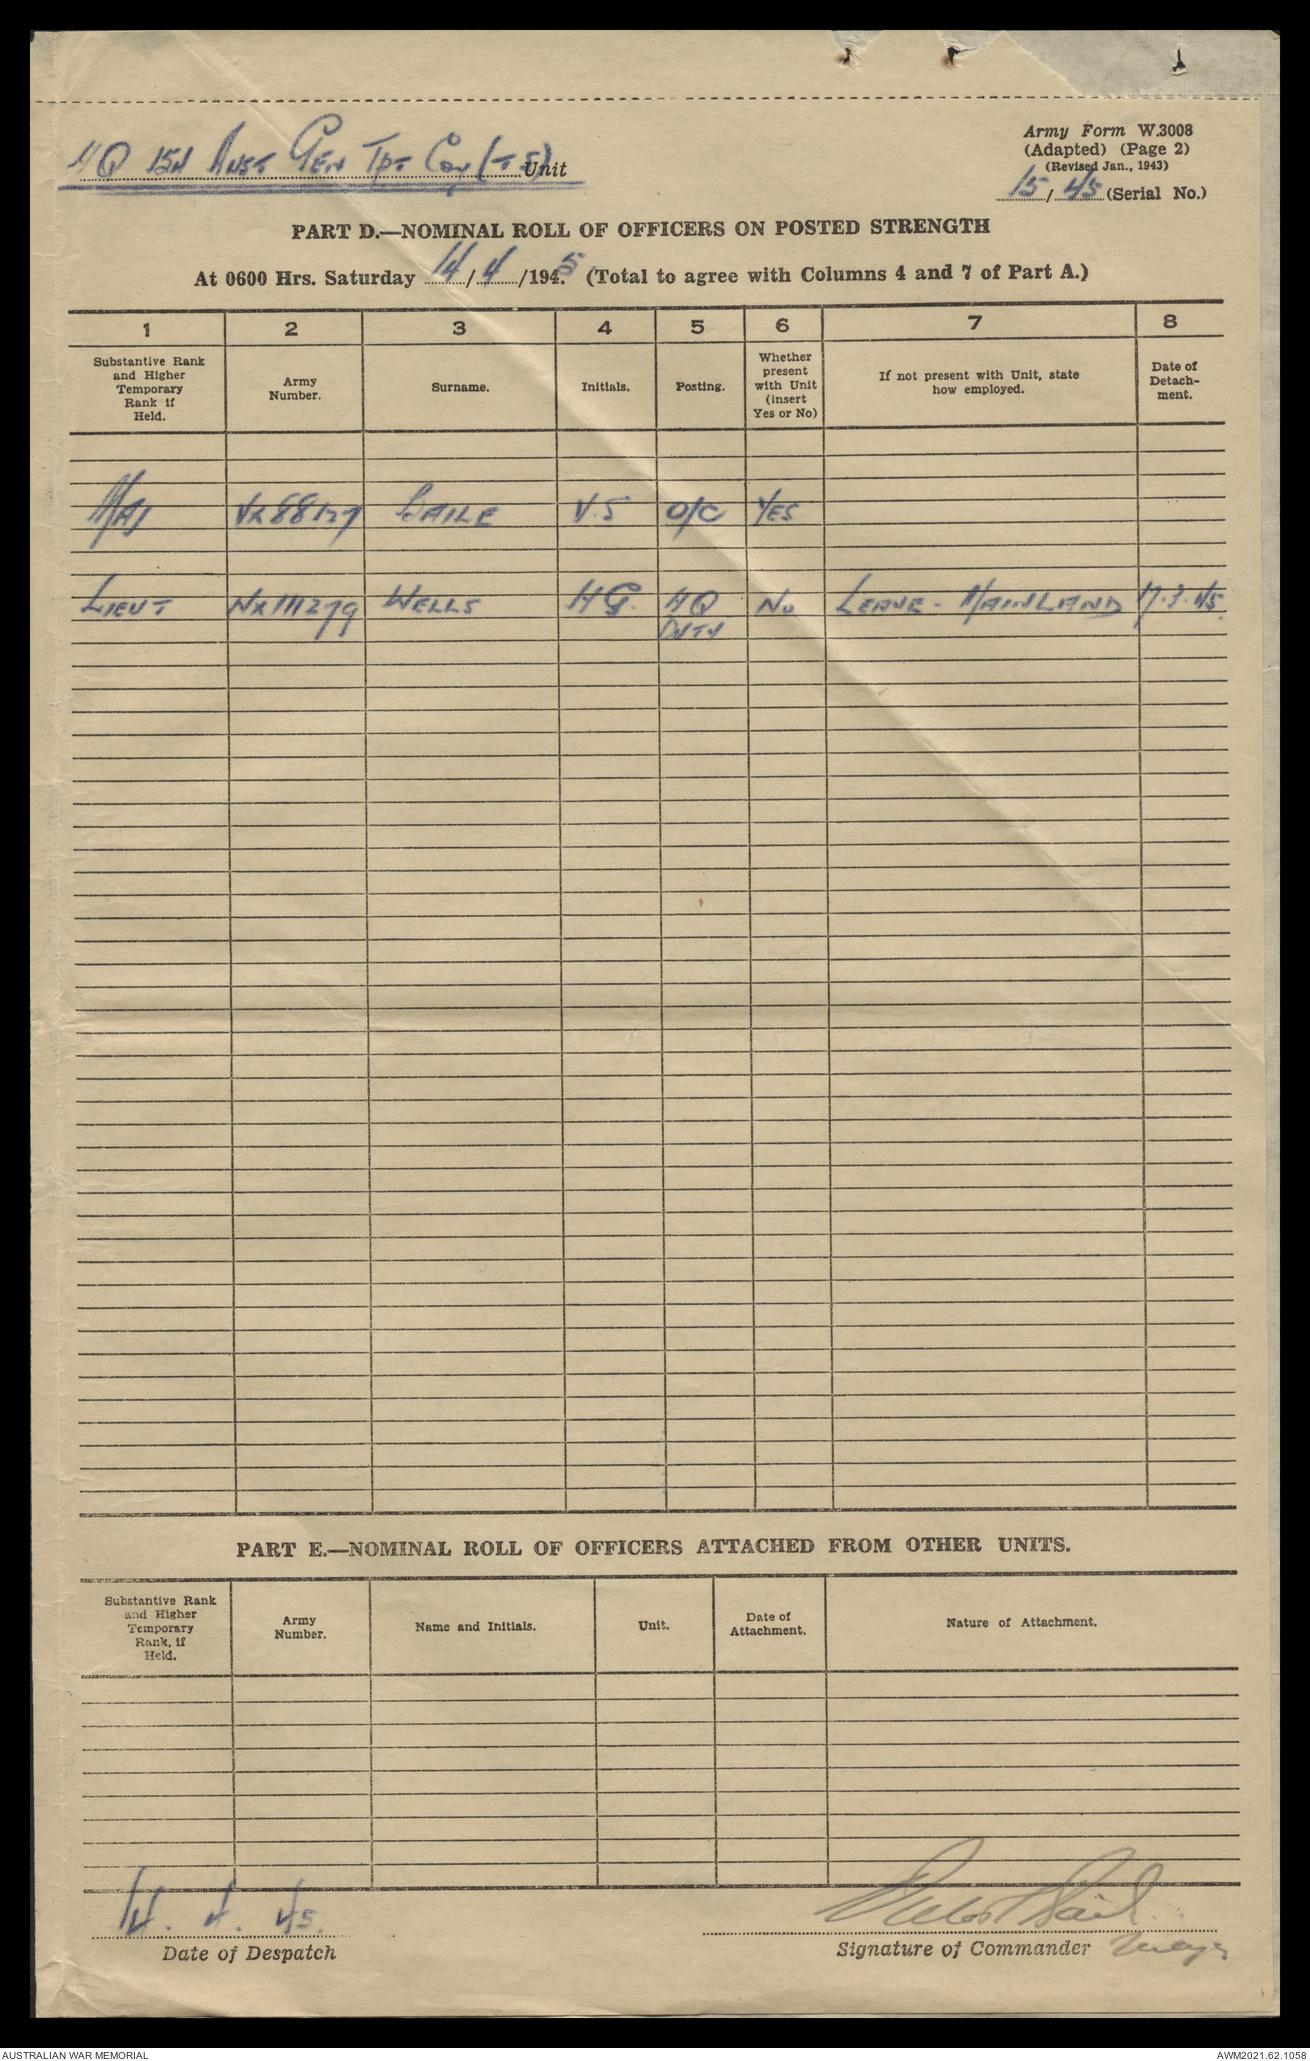 HQ 154 Aust Gen Tpt Coy (T S) Unit
Army Form W.3008
(Adapted) (Page 2)
(Revised Jan., 1943)
15/45 (Serial No.)
PART D.—NOMINAL ROLL OF OFFICERS ON POSTED STRENGTH
At 0600 Hrs. Saturday 14/4/1945 (Total to agree with Columns 4 and 7 of Part A.)
1 2 3 4 5 6 7 8
Substantive Rank
and Higher
Temporary
Rank if
Held.
Army
Number.
Surname.
Initials.
Posting.
Whether
present
with Unit
(insert
Yes or No)
If not present with Unit, state
how employed.
Date of
Detach-
ment.
MAJ VX88127 BAILE V.S O/C YES
LIEUT NX111279 WELLS H G. HQ No LEAVE - MAINLAND 17.3.45.
DUTY
PART E.—NOMINAL ROLL OF OFFICERS ATTACHED FROM OTHER UNITS.
Substantive Rank
and Higher
Temporary
Rank, if
Held.
Army
Number.
Name and Initials.
Unit.
Date of
Attachment.
Nature of Attachment.
14. 4. 45.
Date of Despatch
Signature of Commander Major
AUSTRALIAN WAR MEMORIAL
AWM2021.62.1058